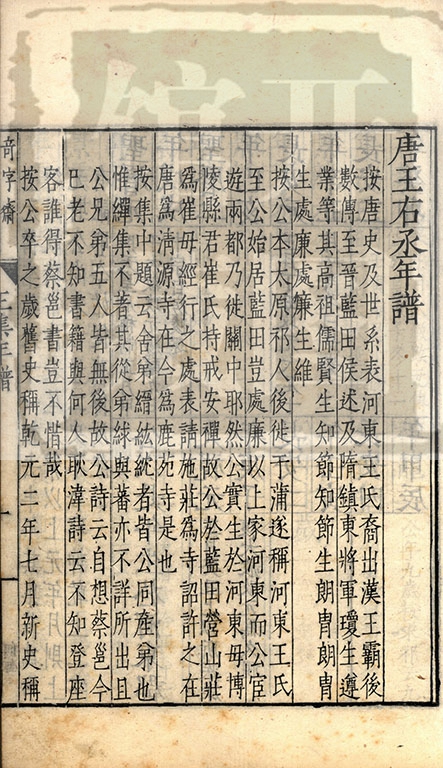 唐王右丞年譜
按唐史及世系表河東王氏裔出漢王霸後
數傳至晉藍田侯述及隋鎮東將軍瓊生遵
業等其高祖儒賢生知節知節生朗胄朗胄
生處廉處廉生維
按公本太原祁人後徙于蒲遂稱河東王氏
至公始居藍田豈處廉以上家河東而公宦
遊兩都乃徙關中耶然公實生於河東毋博
陵縣君崔氏持戒安禪故公於藍田營山莊
爲崔毋經行之處表請施莊爲寺詔許之在
唐爲清源寺在今爲鹿苑寺是也
按集中題云舍弟縉紘紞者皆公同產弟也
惟繟集不著其從弟絿與蕃亦不詳所出且
公兄弟五人皆無後故公詩云自想蔡邕今
巳老不知書籍與何人耿湋詩云不知登座
客誰得蔡邕書豈不惜哉
按公卒之歲舊史稱乾元二年七月新史稱
奇字齋
王集年譜
一